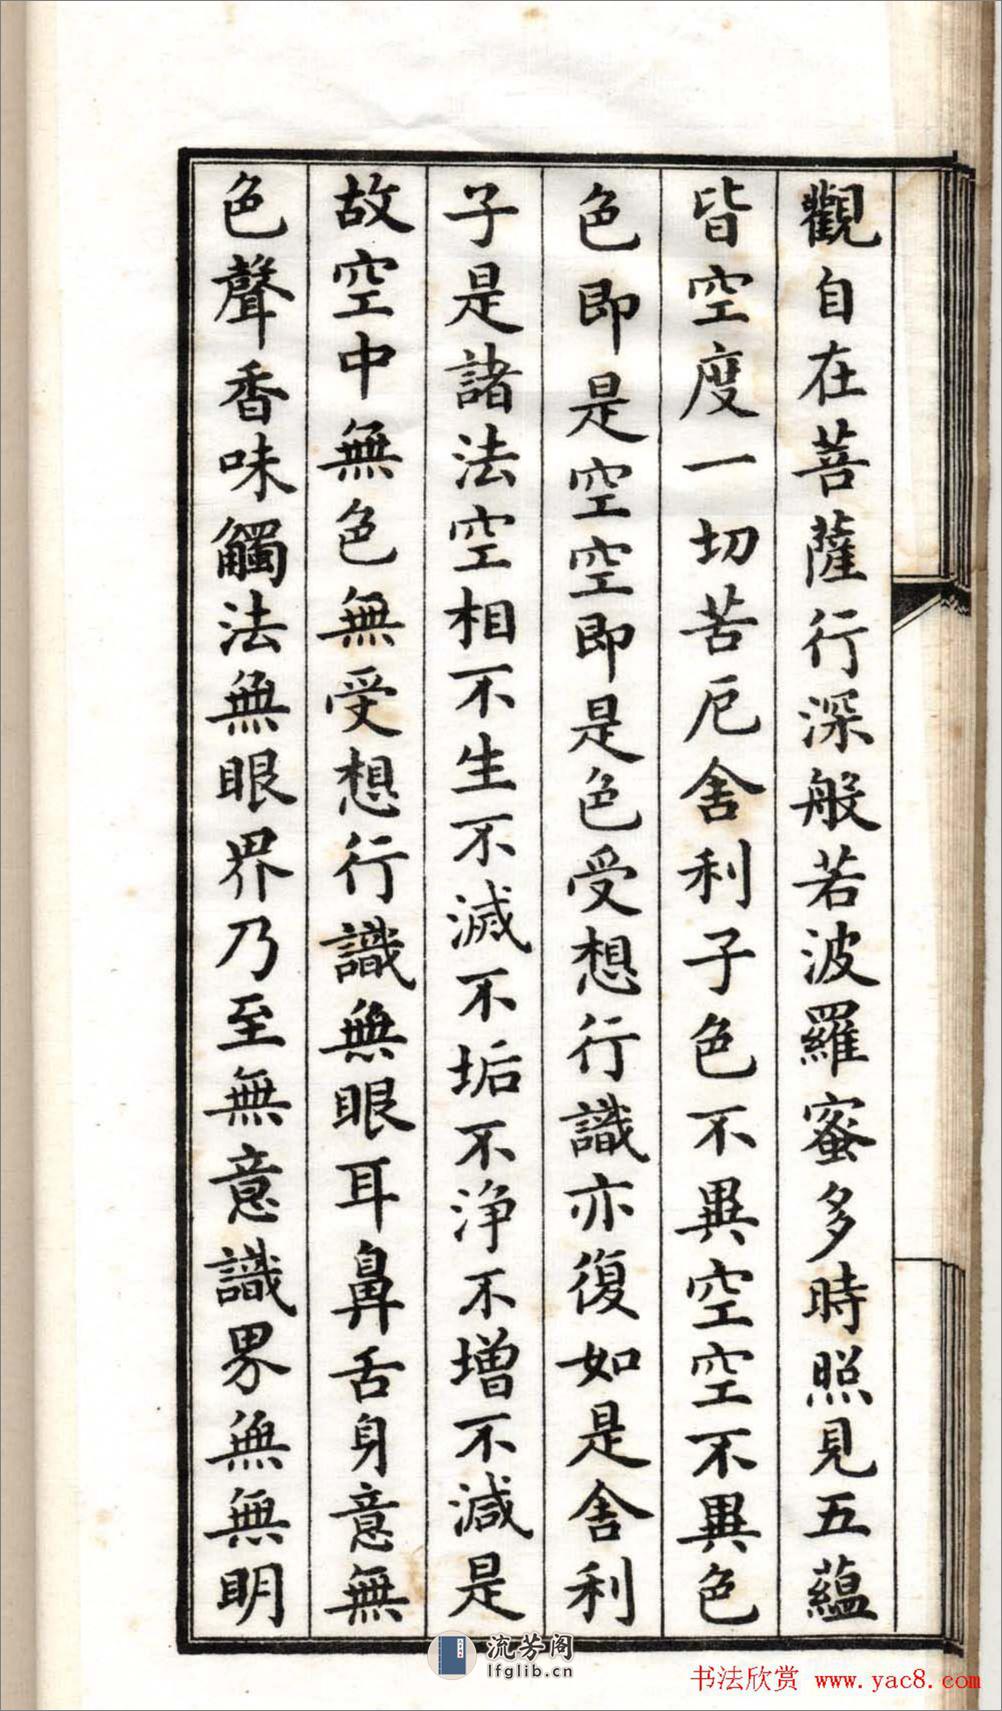 觀自在菩薩行深般若波羅蜜多時照見五蘊
皆空度一切苦厄舍利子色不異空空不異色
色即是空空即是色受想行識亦復如是舍利
子是諸法空相不生不滅不垢不淨不增不減是
故空中無色無受想行識無眼耳鼻舌身意無
色聲香味觸法無眼界乃至無意識界無無明
流芳阁
lfglib.cn
书法欣赏 www.yac8.com